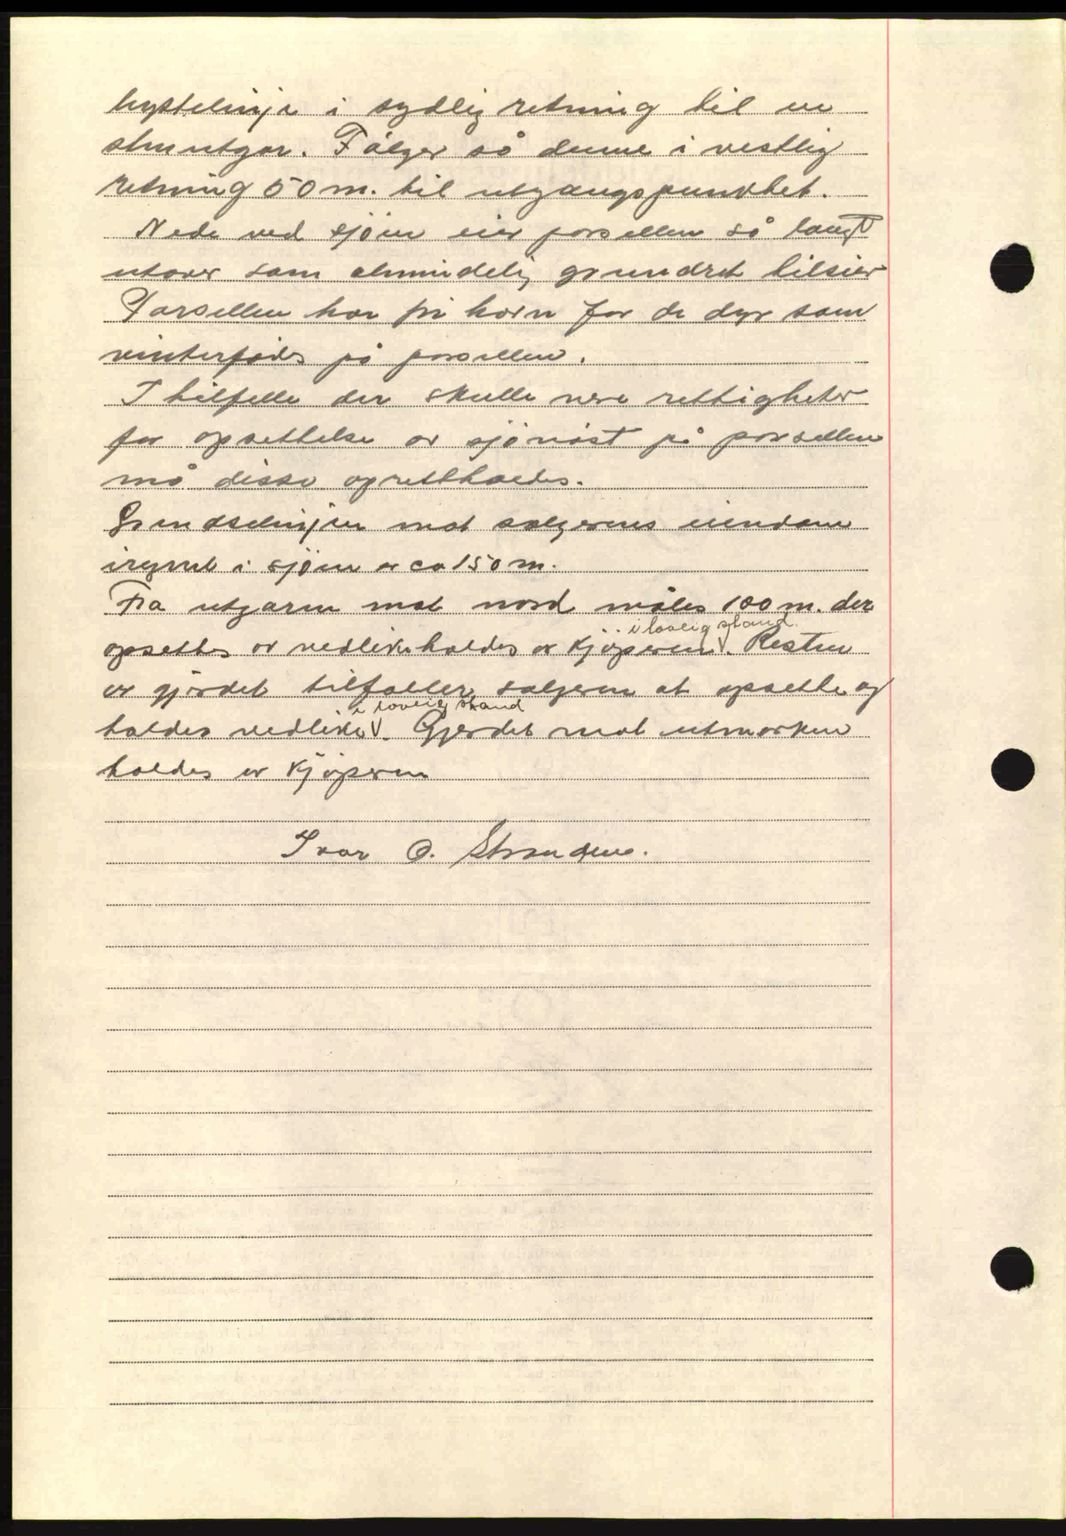 byttelinje i sydlig retning til en
stenutgar. Følger så denne i vestlig
retning 50 m. til utgangspunktet.
Nede ved sjöen eier parsellen så langt
utover som almindelig grundret tilsier
Parsellen har fri havn for de dyr som
vinterfödes på parsellen.
I tilfelle der skulle være rettigheter
for opsettelse av sjönöst på parsellen
må disse oprettholdes.
Grendselinjen mot selgerens eiendom
iregnet i sjöen er ca 150 m.
Fra utgaren mot nord måles 100 m. der
i lovlig stand
opsettes og vedlikeholdes av kjöperen V. Resten
av gjerdet tilfaller selgeren at opsette og
i lovlig stand
holdes vedlike V. Gjerdet mot utmarken
holdes av kjöperen
Ivar O. Stranden.